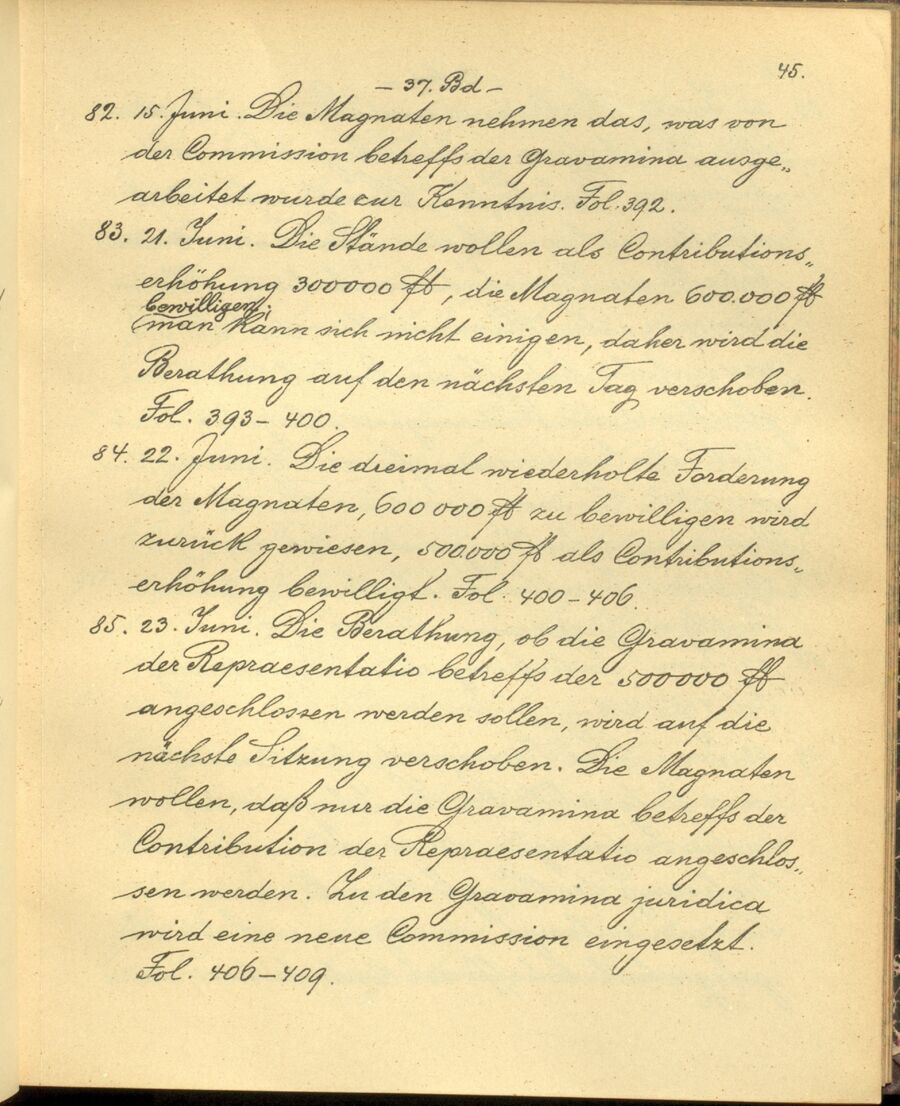 45.
– 37. Bd –
82. 15. Juni. Die Magnaten nehmen das, was von
der Commission betreffs der Gravamina ausge„
arbeitet wurde zur Kenntnis. Fol. 392.
83. 21. Juni. Die Stände wollen als Contributions„
erhöhung 300000 ft, die Magnaten 600.000 ft
bewilligen;
man kann sich nicht einigen, daher wird die
Berathung auf den nächsten Tag verschoben.
Fol. 393 – 400.
84. 22. Juni. Die dreimal wiederholte Forderung
der Magnaten, 600 000 ft zu bewilligen wird
zurück gewiesen, 500.000 ft als Contributions„
erhöhung bewilligt. Fol. 400 – 406.
85. 23. Juni. Die Berathung, ob die Gravamina
der Repraesentatio betreffs der 500000 ft
angeschlossen werden sollen, wird auf die
nächste Sitzung verschoben. Die Magnaten
wollen, daß nur die Gravamina betreffs der
Contribution der Repraesentatio angeschlos„
sen werden. Zu den Gravamina juridica
wird eine neue Commission eingesetzt.
Fol. 406 – 409.